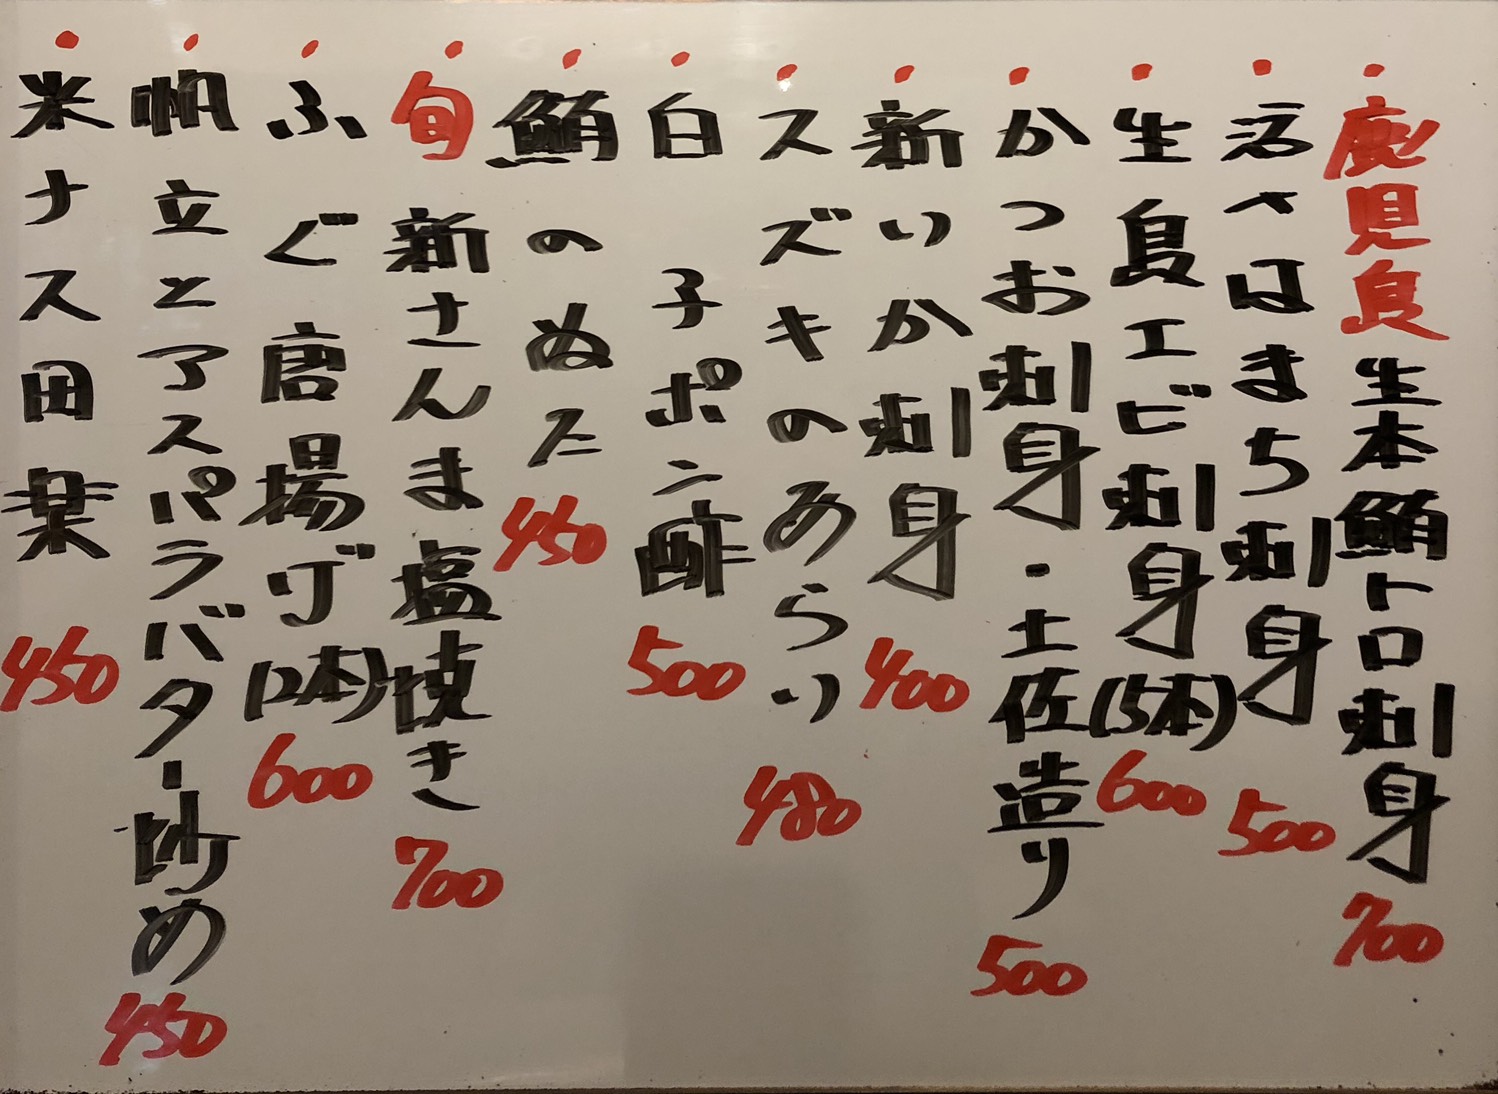 ・鹿児島生本鮪トロ刺身 700
・活〆はまち刺身 500
・生島エビ刺身(5本) 600
・かつお刺身・土佐造り 500
・新いか刺身 400
・スズキのあらい 480
・白子ポン酢 500
・鮪のぬた 450
・旬新さんま塩焼き 700
・ふぐ唐揚げ(2本) 600
・帆立とアスパラバター炒め 450
・米ナス田楽 450